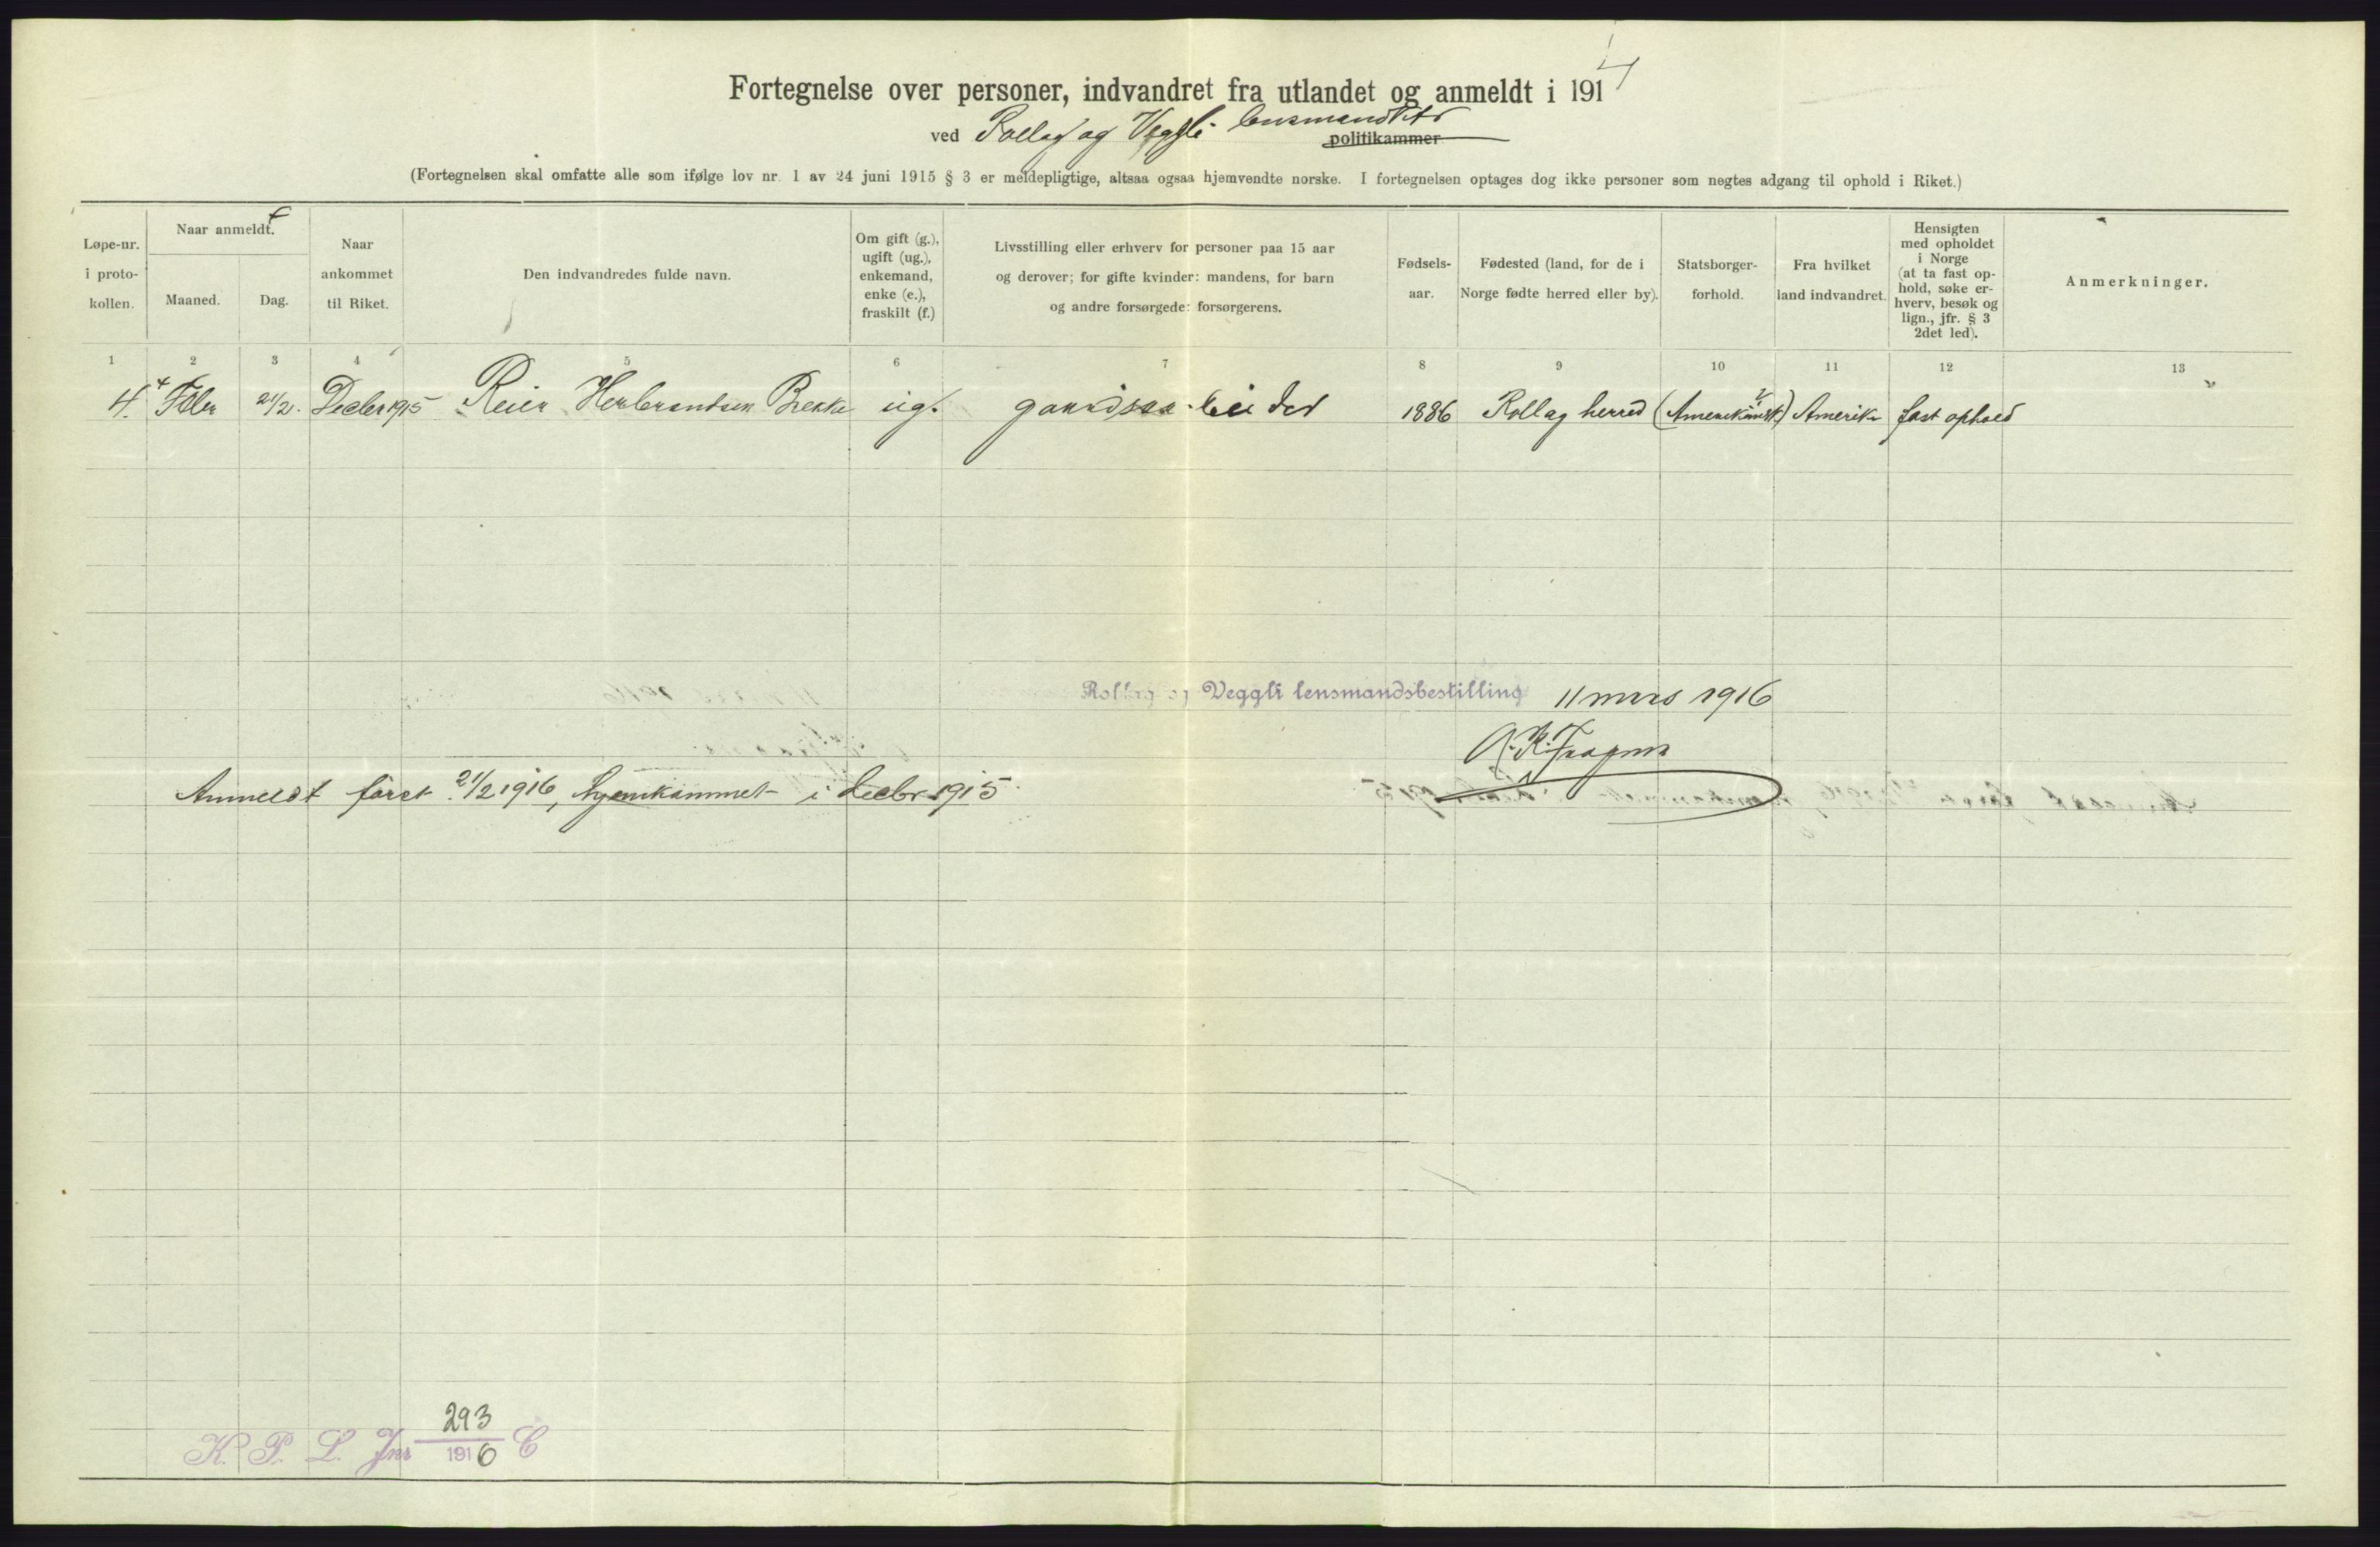 Fortegnelse over personer, indvandret fra utlandet og anmeldt i 191
ved Rollag og Veggli lensmandsdistr politikammer
(Fortegnelsen skal omfatte alle som ifølge lov nr. 1 av 24 juni 1915 § 3 er meldepligtige, altsaa ogsaa hjemvendte norske. I fortegnelsen optages dog ikke personer som negtes adgang til ophold i Riket.)
Løpe-nr. i proto- kollen.
Naar anmeldt.
Maaned.
Dag.
Naar ankommet til Riket.
Den indvandredes fulde navn.
Om gift (g.), ugift (ug.), enkemand, enke (e.), fraskilt (f.)
Livsstilling eller erhverv for personer paa 15 aar
og derover; for gifte kvinder: mandens, for barn
og andre forsørgede: forsørgerens.
Fødsels- aar.
Fødested (land, for de i
Norge fødte herred eller by).
Statsborger- forhold.
Fra hvilket
land indvandret.
Hensigten
med opholdet
i Norge
(at ta fast op-
hold, søke er-
hverv, besøk og
lign., jfr. § 3
2det led).
Anmerkninger.
1 2 3 4 5 6 7 8 9 10 11 12 13
4. Febr 21/2. Decbr 1915 Reier Herbrandsen Brekke ug. gaardsarbeider 1886 Rollag herred (Amerikansk?) Amerika fast ophold
Rollag og Veggli lensmandsbestilling 11 mars 1916
Anmeldt først 21/2 1916, hjemkommet i decbr 1915
K. P. L. Jnr 293 1916 C